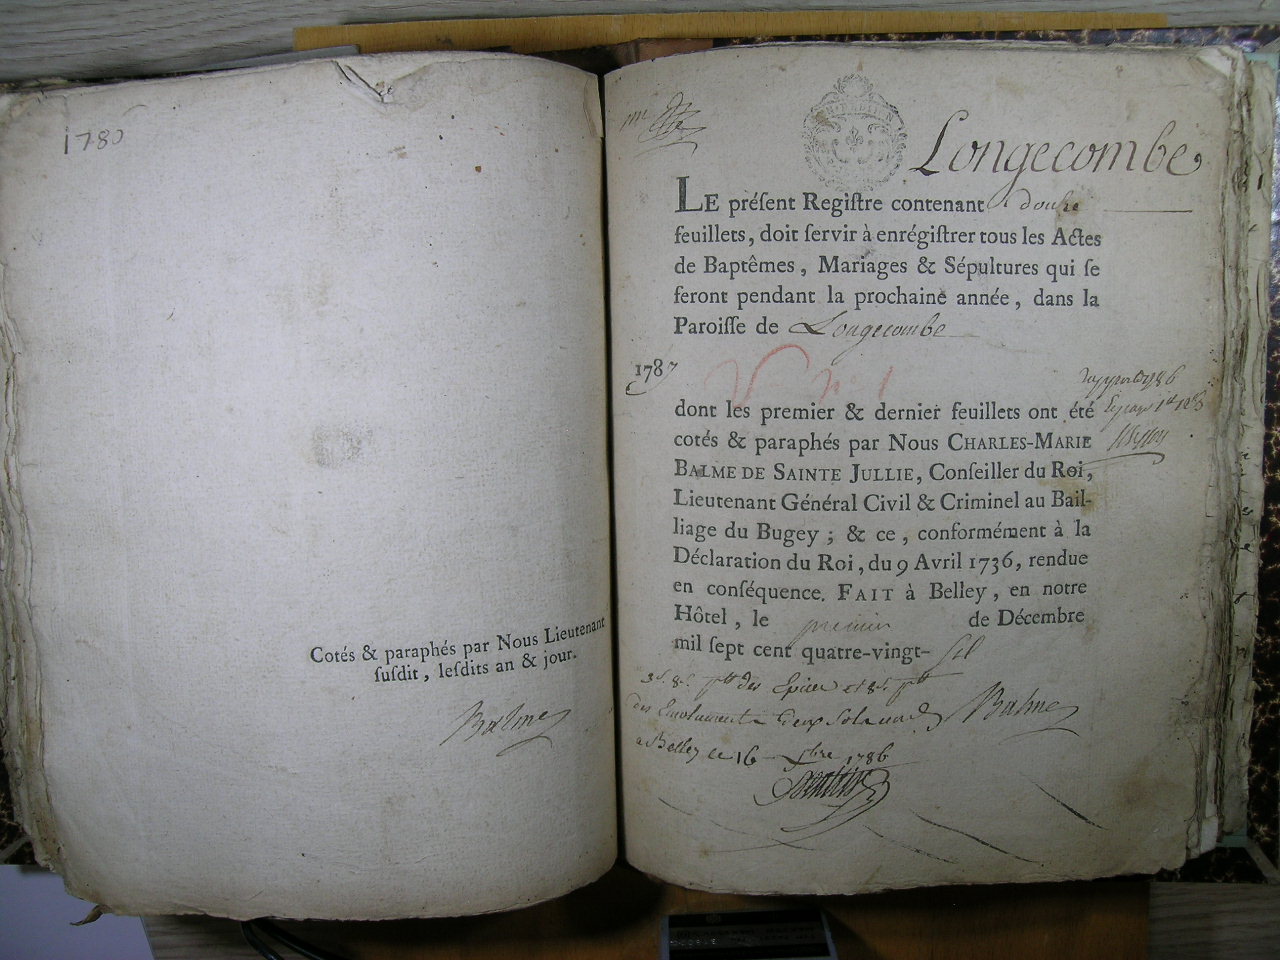 1780
Cotés & paraphés par Nous Lieutenant
ſuſdit, leſdits an & jour.
Balme
Longecombe
LE préſent Regiſtre contenant douze
feuillets, doit ſervir à enrégiſtrer tous les Actes
de Baptêmes, Mariages & Sépultures qui ſe
feront pendant la prochaine année, dans la
Paroiſſe de Longecombe
1787
dont les premier & dernier feuillets ont été
cotés & paraphés par Nous CHARLES-MARIE
BALME DE SAINTE JULLIE, Conſeiller du Roi,
Lieutenant Général Civil & Criminel au Bail-
liage du Bugey; & ce, conformément à la
Déclaration du Roi, du 9 Avril 1736, rendue
en conſéquence. FAIT à Belley, en notre
Hôtel, le premier de Décembre
mil ſept cent quatre-vingt-ſix
des Epices et
des Emoluments deux sols
Balme
a Belley ce 16 Xbre 1786